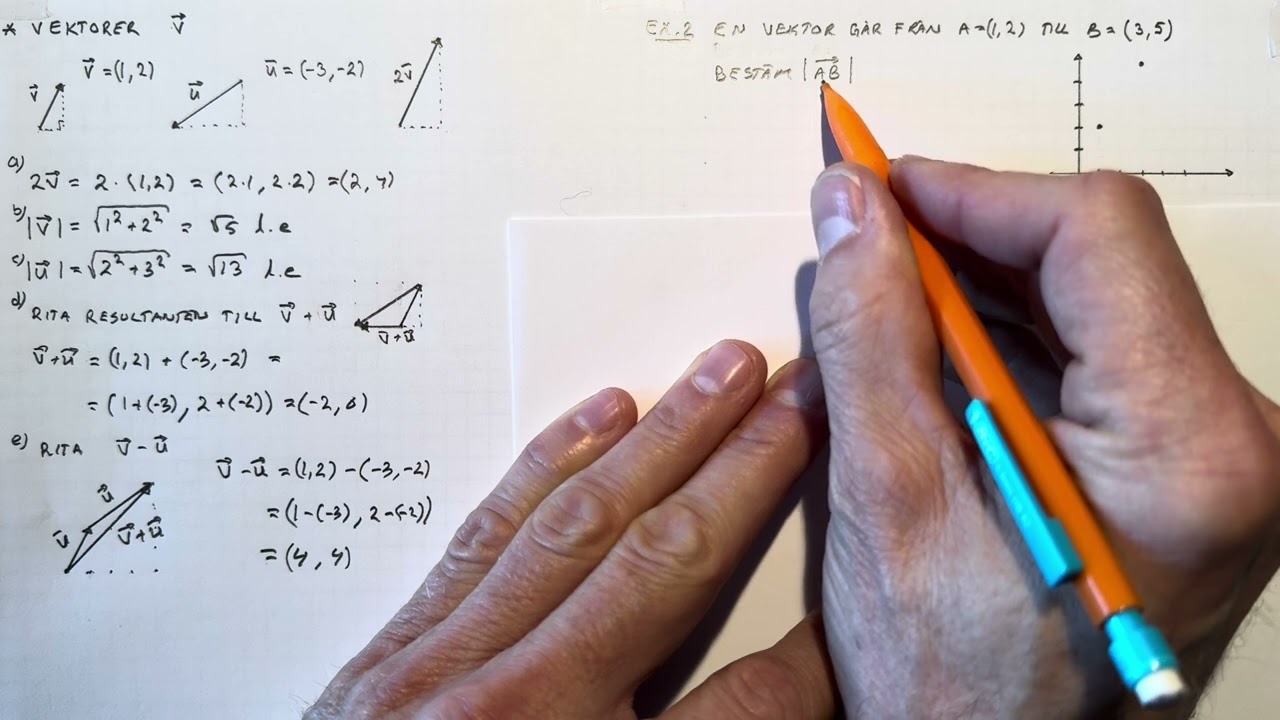 * VEKTORER v⃗
v⃗ = (1,2)
v⃗
u⃗ = (-3,-2)
u⃗
2v⃗
a) 2v⃗ = 2·(1,2) = (2·1, 2·2) = (2,4)
b) |v⃗| = √(1²+2²) = √5 l.e
c) |u⃗| = √(2²+3²) = √13 l.e
d) RITA RESULTANTEN TILL v⃗ + u⃗
v⃗+u⃗
v⃗+u⃗ = (1,2) + (-3,-2) =
= (1+(-3), 2+(-2)) = (-2,0)
e) RITA v⃗ - u⃗
v⃗ - u⃗ = (1,2) - (-3,-2)
= (1-(-3), 2-(-2))
= (4, 4)
u⃗
v⃗
v⃗+u⃗
EX.2 EN VEKTOR GÅR FRÅN A=(1,2) TILL B=(3,5)
BESTÄM |AB⃗|